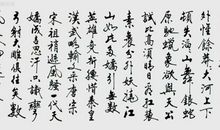 外惟餘莽莽大河上
頓失滔滔山舞銀蛇
原馳蠟象欲與天
試比高須晴日看紅裝
素裹分外妖嬈江
山如此多嬌引無數
英雄競折腰惜秦皇
漢武略輸文采唐宗
宋祖稍遜風騷一代天
驕成吉思汗只識彎
弓射大雕俱往矣數